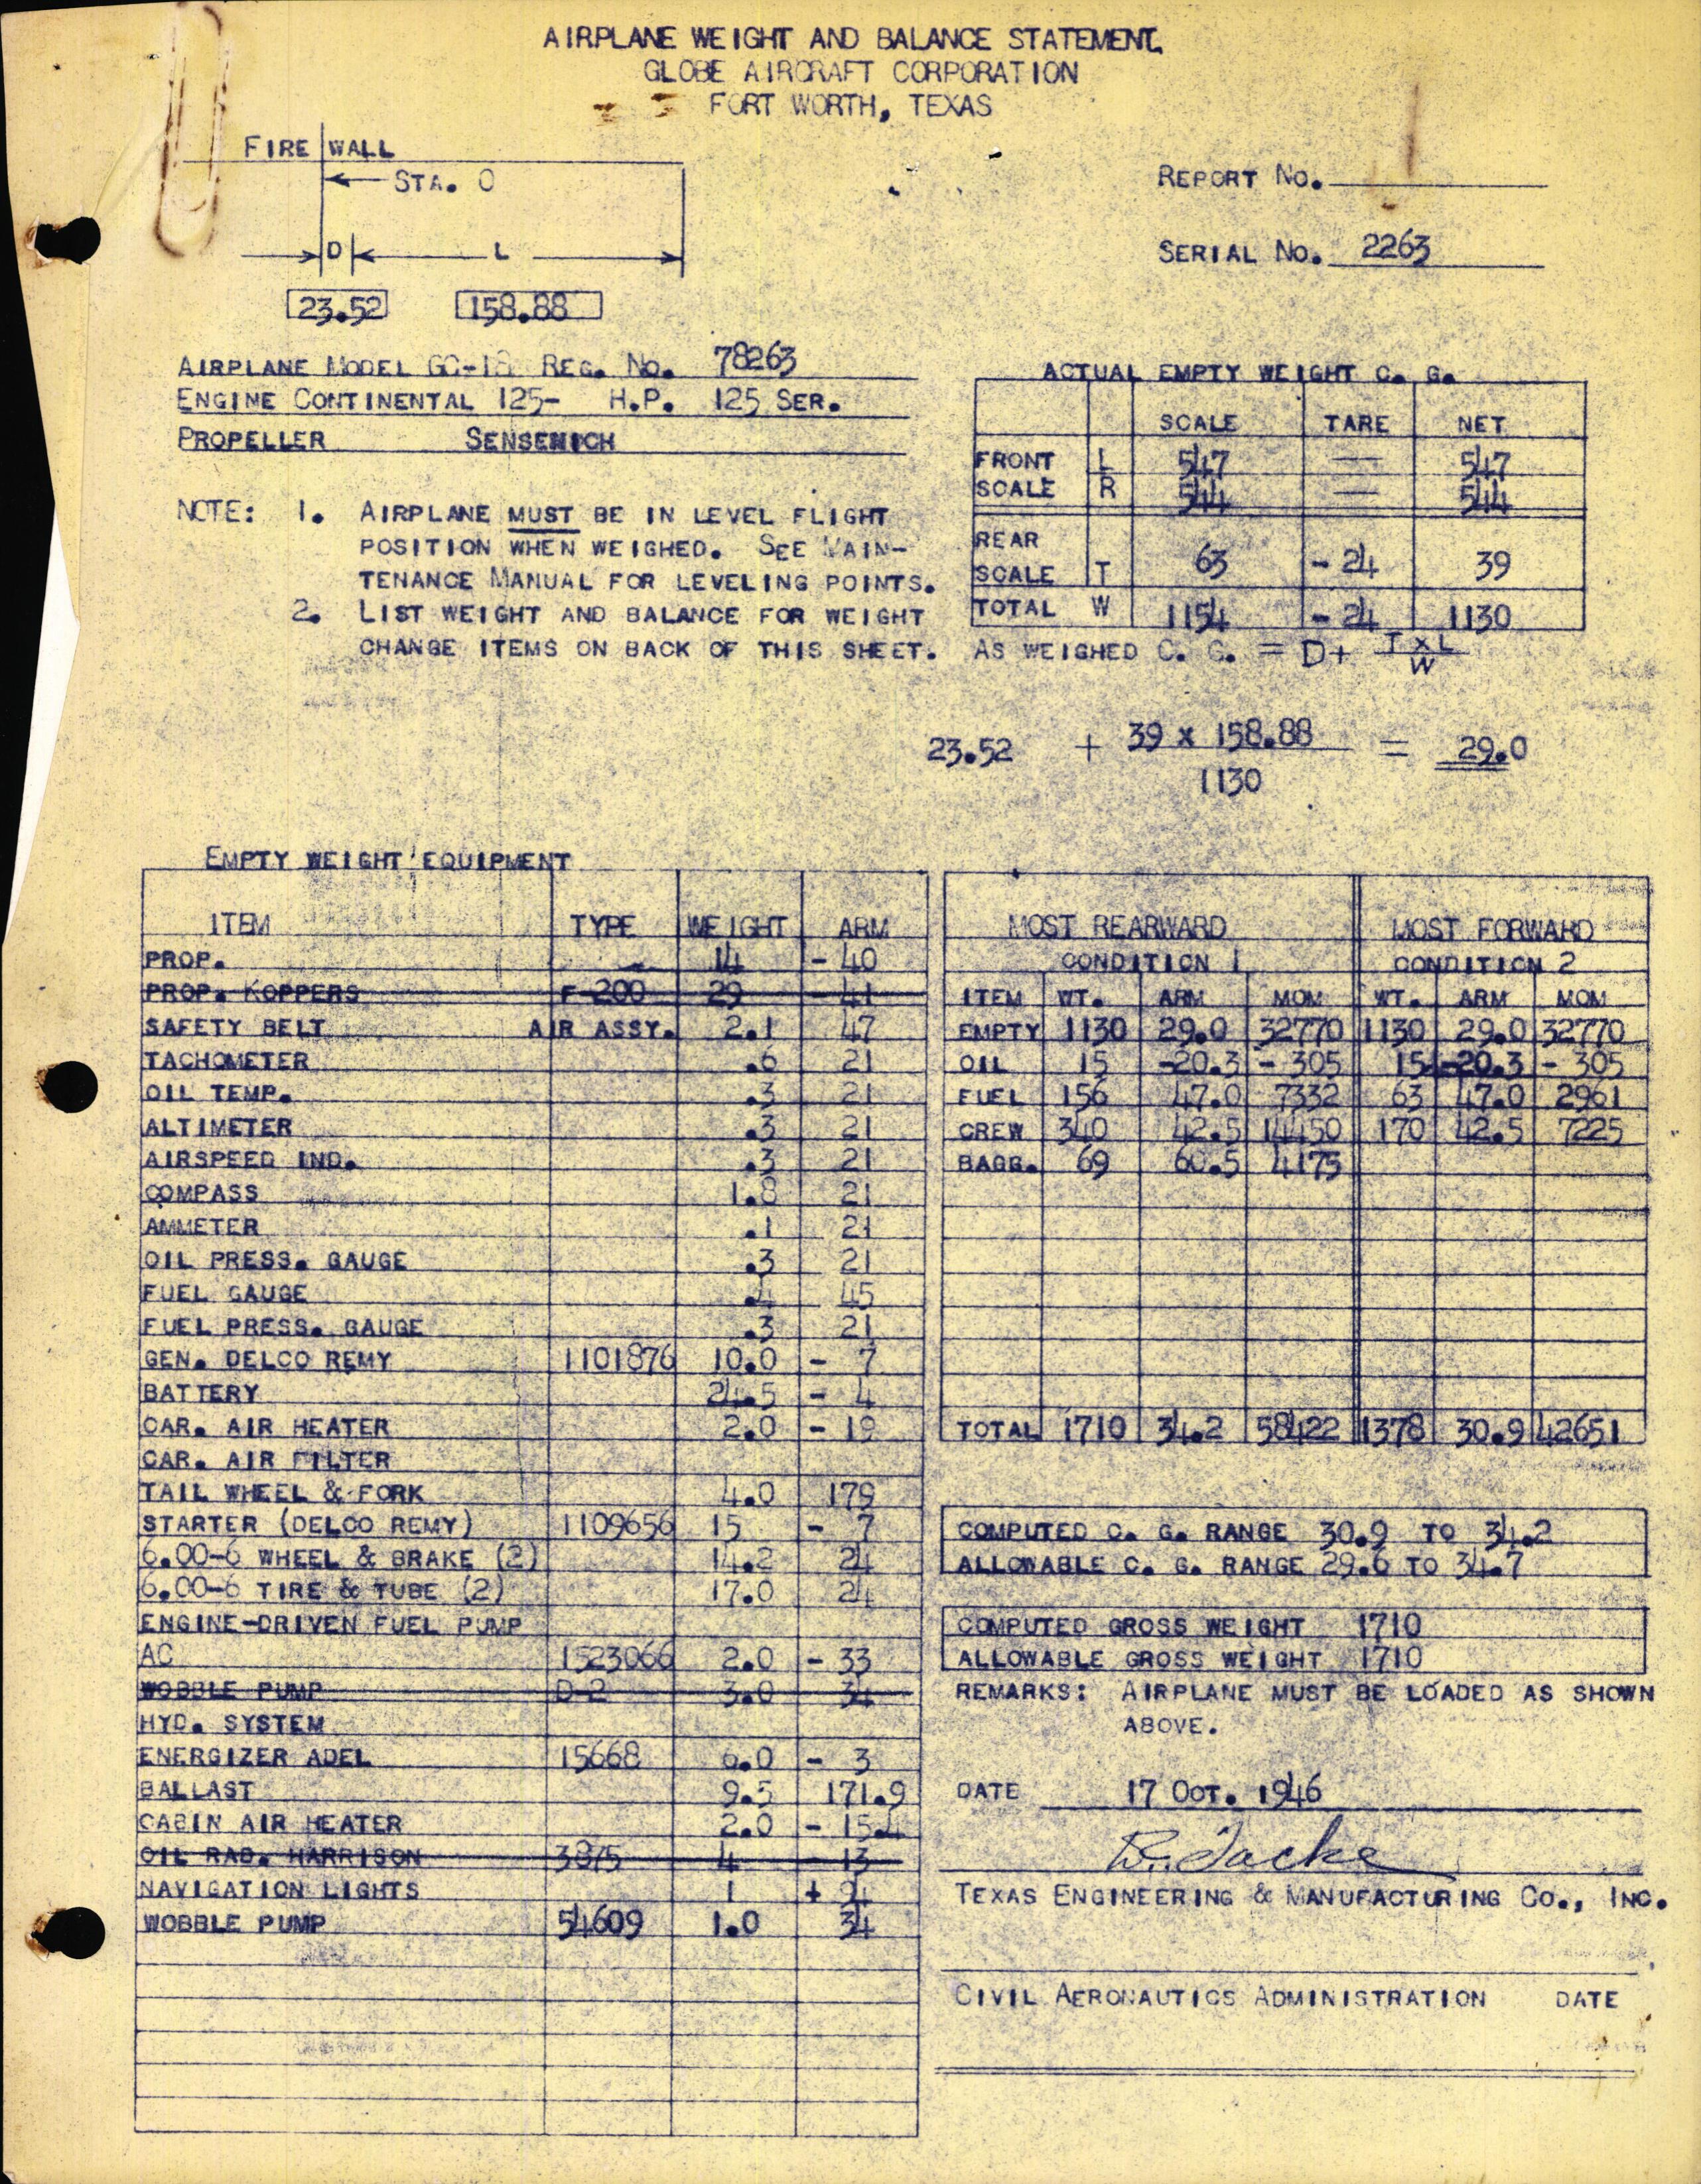 AIRPLANE WEIGHT AND BALANCE STATEMENT
GLOBE AIRCRAFT CORPORATION
FORT WORTH, TEXAS
FIRE WALL
STA. 0
D L
23.52 158.88
REPORT NO.
SERIAL NO. 2263
AIRPLANE MODEL GC-1B REG. NO. 78263
ENGINE CONTINENTAL 125- H.P. 125 SER.
PROPELLER SENSENICH
NOTE: 1. AIRPLANE MUST BE IN LEVEL FLIGHT
POSITION WHEN WEIGHED. SEE MAIN-
TENANCE MANUAL FOR LEVELING POINTS.
2. LIST WEIGHT AND BALANCE FOR WEIGHT
CHANGE ITEMS ON BACK OF THIS SHEET.
ACTUAL EMPTY WEIGHT C. G.
SCALE TARE NET
FRONT L 547 — 547
SCALE R 544 — 544
REAR
SCALE T 63 -24 39
TOTAL W 1154 -24 1130
AS WEIGHED C. G. = D+ T X L
W
23.52 + 39 x 158.88 = 29.0
1130
EMPTY WEIGHT EQUIPMENT
ITEM TYPE WEIGHT ARM
PROP. 14 - 40
PROP. KOPPERS F-200 29 - 41
SAFETY BELT AIR ASSY. 2.1 47
TACHOMETER .6 21
OIL TEMP. .3 21
ALTIMETER .3 21
AIRSPEED IND. .3 21
COMPASS 1.8 21
AMMETER .1 21
OIL PRESS. GAUGE .3 21
FUEL GAUGE .4 45
FUEL PRESS. GAUGE .3 21
GEN. DELCO REMY 1101876 10.0 - 7
BATTERY 24.5 - 4
CAR. AIR HEATER 2.0 - 19
CAR. AIR FILTER
TAIL WHEEL & FORK 4.0 179
STARTER (DELCO REMY) 1109656 15 - 7
6.00-6 WHEEL & BRAKE (2) 14.2 24
6.00-6 TIRE & TUBE (2) 17.0 24
ENGINE-DRIVEN FUEL PUMP
AC 1523066 2.0 - 33
WOBBLE PUMP D-2 3.0 34
HYD. SYSTEM
ENERGIZER ADEL 15668 6.0 - 3
BALLAST 9.5 171.9
CABIN AIR HEATER 2.0 - 15.4
OIL RAD. HARRISON 3875 4 - 13
NAVIGATION LIGHTS 1 + 94
WOBBLE PUMP 54609 1.0 34
MOST REARWARD MOST FORWARD
CONDITION 1 CONDITION 2
ITEM WT. ARM MOM WT. ARM MOM
EMPTY 1130 29.0 32770 1130 29.0 32770
OIL 15 -20.3 - 305 15 -20.3 - 305
FUEL 156 47.0 7332 63 47.0 2961
CREW 340 42.5 14450 170 42.5 7225
BAGG. 69 60.5 4175
TOTAL 1710 34.2 58422 1378 30.9 42651
COMPUTED C. G. RANGE 30.9 TO 34.2
ALLOWABLE C. G. RANGE 29.6 TO 34.7
COMPUTED GROSS WEIGHT 1710
ALLOWABLE GROSS WEIGHT 1710
REMARKS: AIRPLANE MUST BE LOADED AS SHOWN
ABOVE.
DATE 17 OCT. 1946
TEXAS ENGINEERING & MANUFACTURING CO., INC.
CIVIL AERONAUTICS ADMINISTRATION DATE